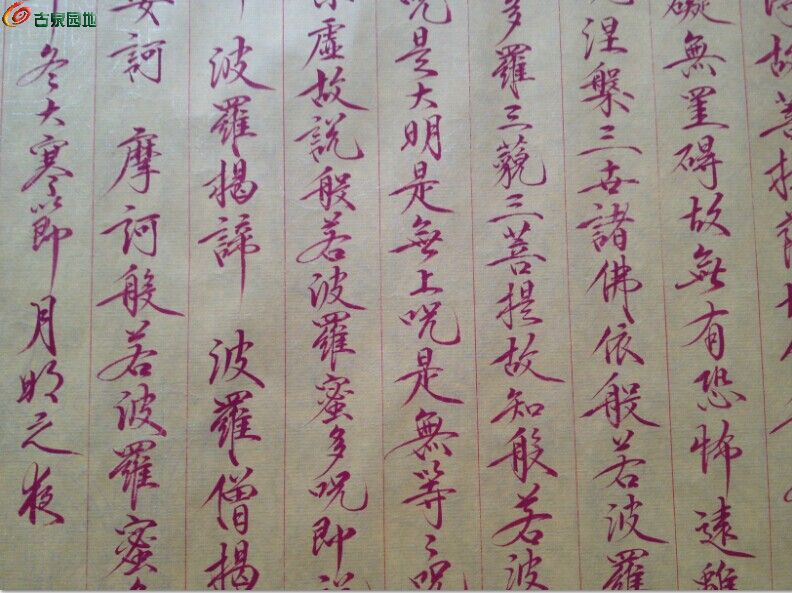 古泉园地
故菩提薩
礙無罣碍故無有恐怖遠離
涅槃三世諸佛依般若波羅
多羅三藐三菩提故知般若波
咒是大明是無上咒是無等々咒
虛故說般若波羅蜜多咒即說
波羅揭諦 波羅僧揭
訶 摩訶般若波羅蜜多
冬大寒節 月明之夜